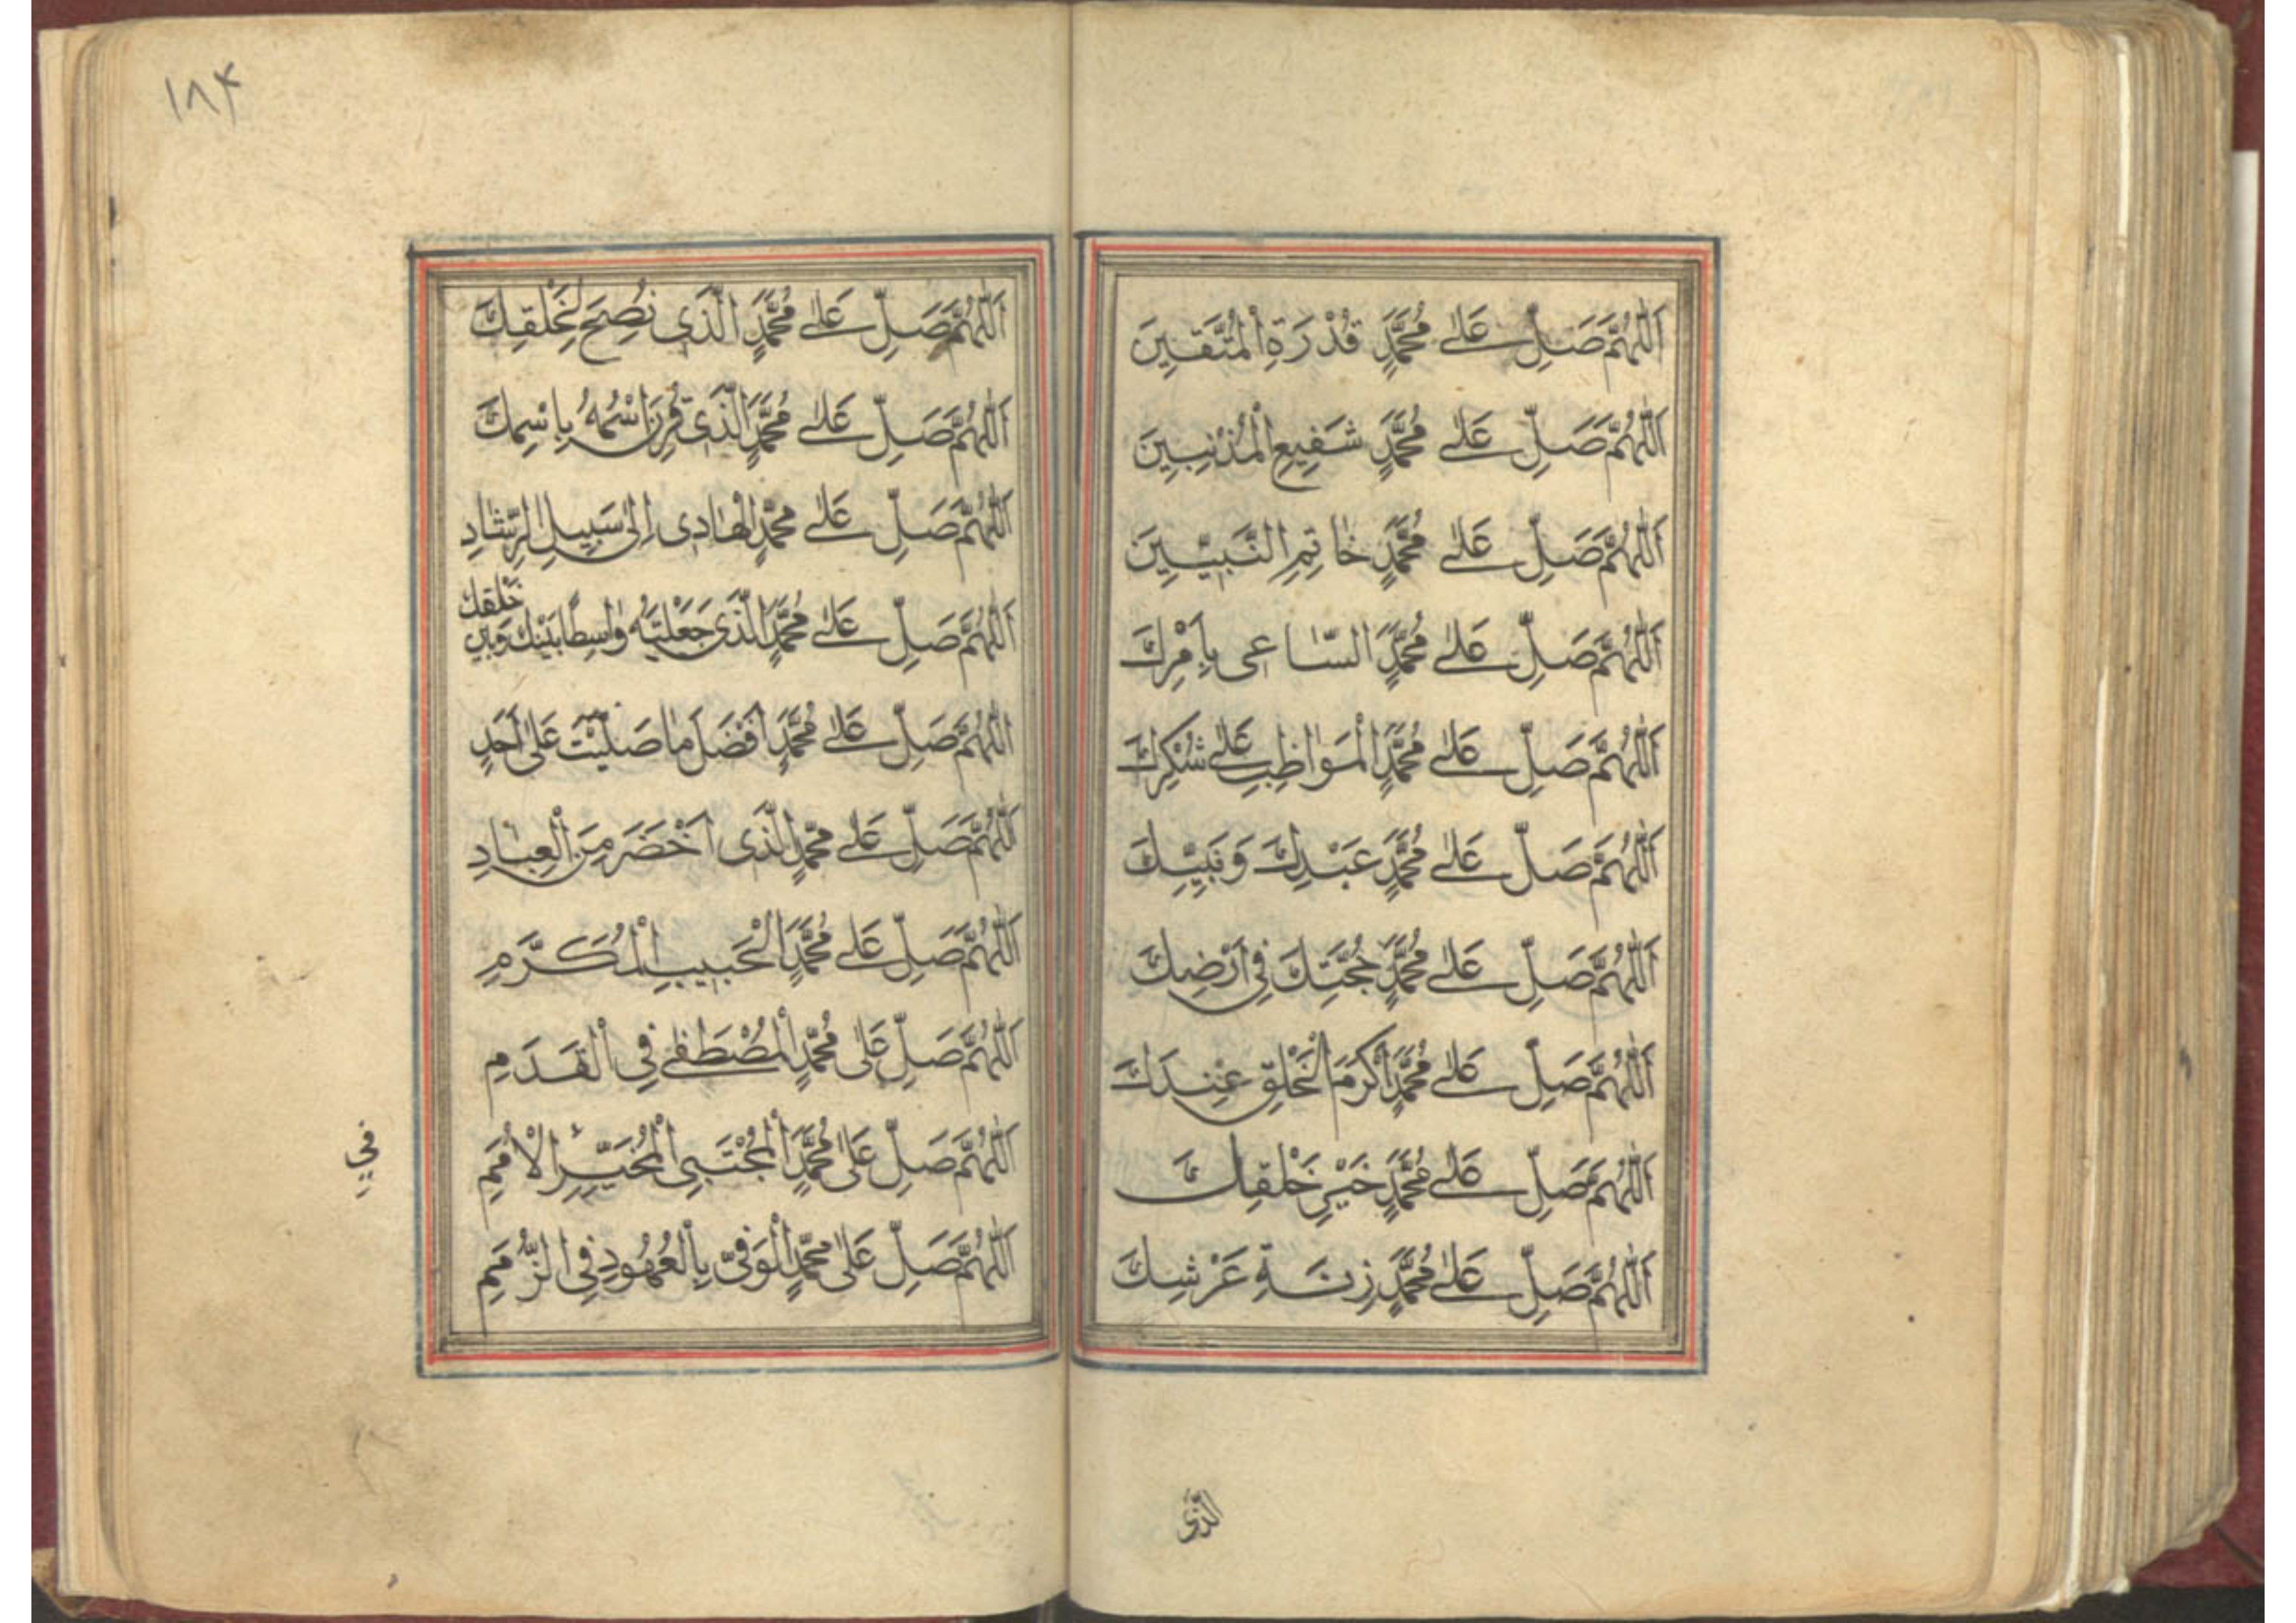 اَللّٰهُمَّ صَلِّ عَلٰى مُحَمَّدٍ قُدْرَةِ الْمُتَّقِينَ
اَللّٰهُمَّ صَلِّ عَلٰى مُحَمَّدٍ شَفِيعِ الْمُذْنِبِينَ
اَللّٰهُمَّ صَلِّ عَلٰى مُحَمَّدٍ خَاتِمِ النَّبِيِّينَ
اَللّٰهُمَّ صَلِّ عَلٰى مُحَمَّدٍ السَّاعِى بِاَمْرِكَ
اَللّٰهُمَّ صَلِّ عَلٰى مُحَمَّدٍ الْمُوَاظِبِ عَلٰى شُكْرِكَ
اَللّٰهُمَّ صَلِّ عَلٰى مُحَمَّدٍ عَبْدِكَ وَنَبِيِّكَ
اَللّٰهُمَّ صَلِّ عَلٰى مُحَمَّدٍ حُجَّتِكَ فِى اَرْضِكَ
اَللّٰهُمَّ صَلِّ عَلٰى مُحَمَّدٍ اَكْرَمِ الْخَلْقِ عِنْدَكَ
اَللّٰهُمَّ صَلِّ عَلٰى مُحَمَّدٍ خَيْرِ خَلْقِكَ
اَللّٰهُمَّ صَلِّ عَلٰى مُحَمَّدٍ زِنَةِ عَرْشِكَ
الذى
١٨۴
اَللّٰهُمَّ صَلِّ عَلٰى مُحَمَّدٍ الَّذِى نُصِحَ لِخَلْقِكَ
اَللّٰهُمَّ صَلِّ عَلٰى مُحَمَّدٍ الَّذِى قُرِنَ اسْمُهُ بِاسْمِكَ
اَللّٰهُمَّ صَلِّ عَلٰى مُحَمَّدٍ الْهَادِى اِلٰى سَبِيلِ الرَّشَادِ
اَللّٰهُمَّ صَلِّ عَلٰى مُحَمَّدٍ الَّذِى جَعَلْتَهُ وَاسِطًا بَيْنَكَ وَبَيْنَ خَلْقِكَ
اَللّٰهُمَّ صَلِّ عَلٰى مُحَمَّدٍ اَفْضَلَ مَا صَلَّيْتَ عَلٰى اَحَدٍ
اَللّٰهُمَّ صَلِّ عَلٰى مُحَمَّدٍ الَّذِى اَخْضَرَ مِنَ الْعِبَادِ
اَللّٰهُمَّ صَلِّ عَلٰى مُحَمَّدٍ الْحَبِيبِ الْمُكَرَّمِ
اَللّٰهُمَّ صَلِّ عَلٰى مُحَمَّدٍ الْمُصْطَفٰى فِى الْقَدَمِ
اَللّٰهُمَّ صَلِّ عَلٰى مُحَمَّدٍ الْمُجْتَبٰى الْمُخَيَّرِ الْاُمَمِ
اَللّٰهُمَّ صَلِّ عَلٰى مُحَمَّدٍ الْوَفِىِّ بِالْعُهُودِ فِى الذِّمَمِ
فِى